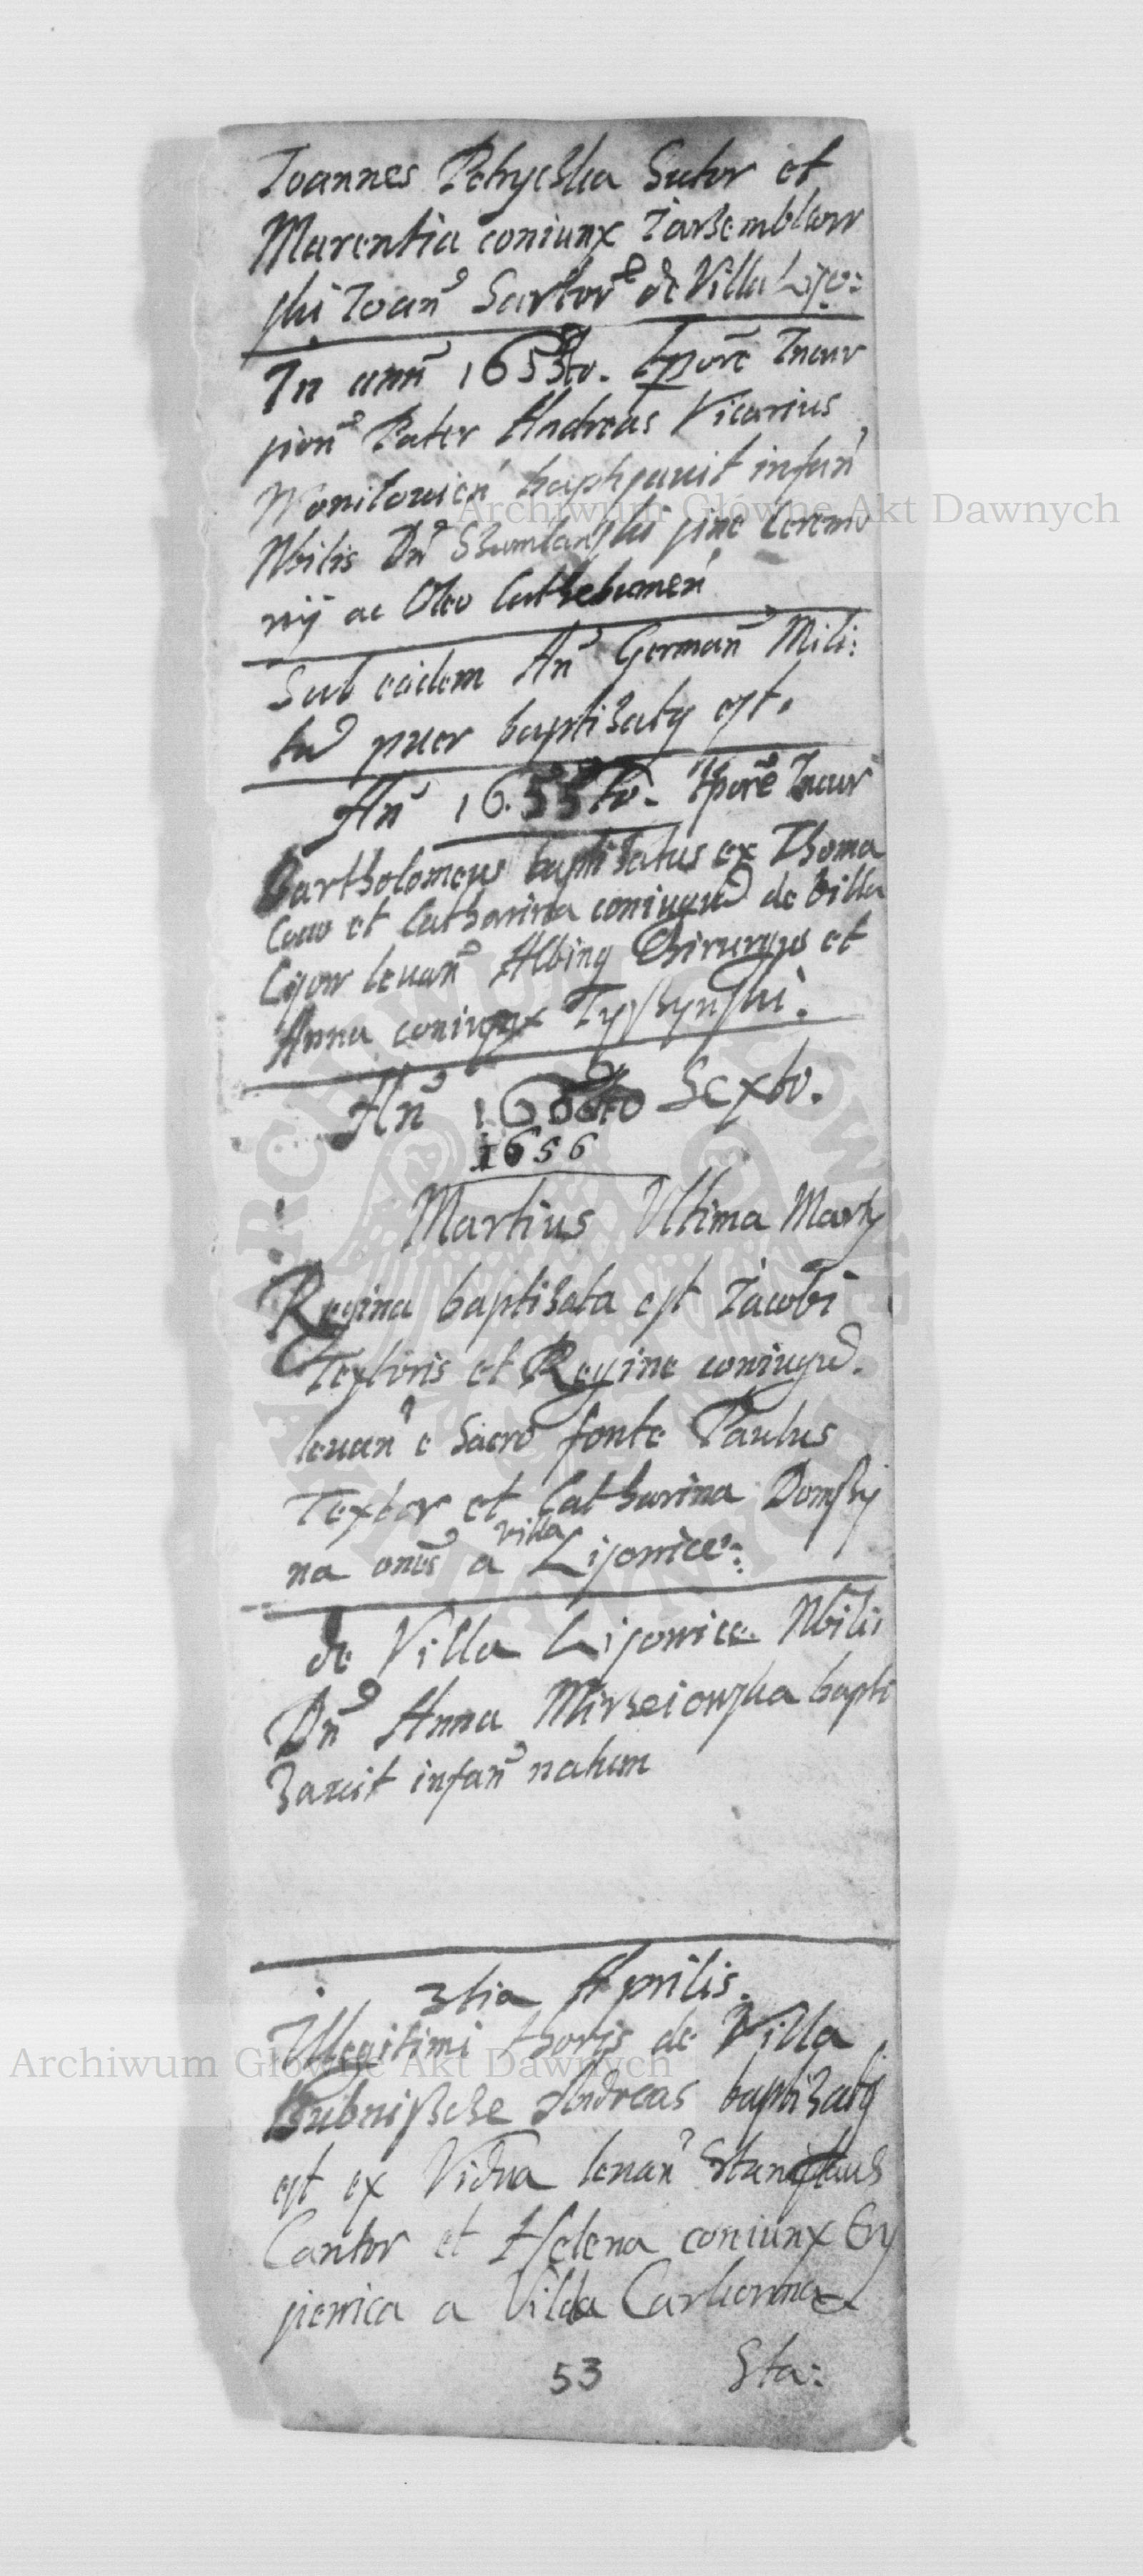 Joannes Petryczka Sutor et
Marentia coniunx Jarzemblow
ski Joan Sartor de Villa Lijo:
In ann 165 to. tpore Incur
sion Pater Andreas Vicarius
Wonilowien baptysauit infan
Nbilis Dn Szumlanski sine Ceremo
nij ac Oleo Cathecumen
Sub eodem An German Mili:
tu puer baptizaty est.
An 1655 to. tpore Incur
Bartholomeus baptizatus ex Thoma
et Catharina coniugu de villa
levan Albing Chirurgus et
Anna coniunx
An 16 Sexto.
1656
Martius Ultima Marty
Regina baptizata est Jacobi
Textoris et Regine coniugu.
levan e sacro fonte Paulus
Textor et Catharina Domszy
villa
na ones a Lijowice:
de Villa Lijowice Nbilis
Dn Anna Mirzeiowska bapti
zauit infan natum
3tia Aprilis.
Illegitimi thoris de Villa
Bubniszcze Andreas baptizaty
est ex Vidua levan Stanislaus
Cantor et Helena coniunx Gry
piewica a Villa
53 Sta:
Archiwum Główne Akt Dawnych
Archiwum Główne Akt Dawnych